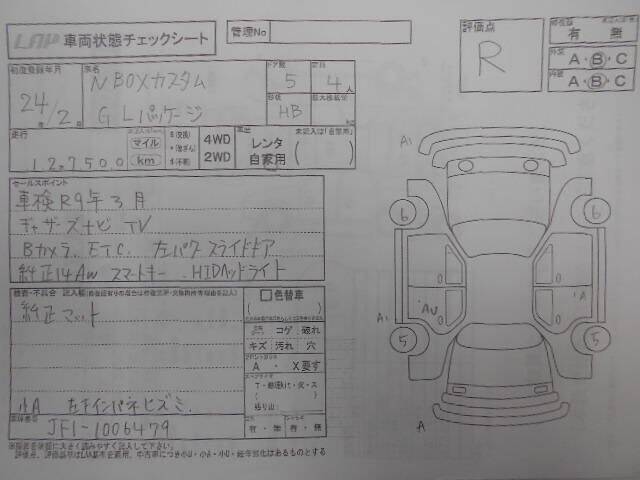 LAA 車両状態チェックシート
管理No
評価点
R
修復歴
有 無
外装
A・B・C
内装
A・B・C
初度登録年月
24年/2月
車名
N BOXカスタム
G Lパッケージ
ドア数
5
定員
4人
形状
HB
最大積載量
走行
127500
マイル
km
4WD
2WD
車歴
レンタ
自家用
未記入は「自家用」
セールスポイント
車検R9年3月
ギャザーズナビ TV
Bカメラ. ETC. 左パワースライドドア
純正14AW スマートキー. HIDヘッドライト
検査・不具合 記入欄
純正マット
小A 左リインパネヒズミ.
□色替車
コゲ 破れ
キズ 汚れ 穴
フロントガラス
A ・ X要す
有・無 有・無
車体番号
JF1-1006479
A1
6
6
AU
A
A1
5
5
A